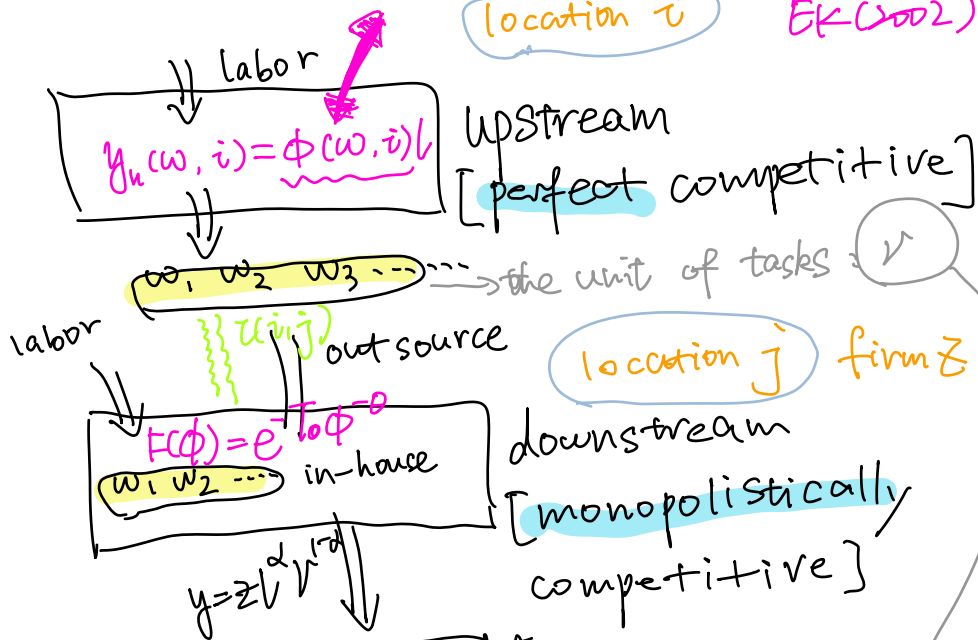 location i
EK(2002)
labor
yu(ω,i)=ϕ(ω,i)l
upstream
[perfect competitive]
ω1 ω2 ω3 ......
the unit of tasks: ν
labor
τ(i,j)
outsource
location j firm z
F(ϕ)=e^-T0ϕ^-θ
ω1 ω2 ... in-house
downstream
[monopolistically
competitive]
y=zl^αν^1-α